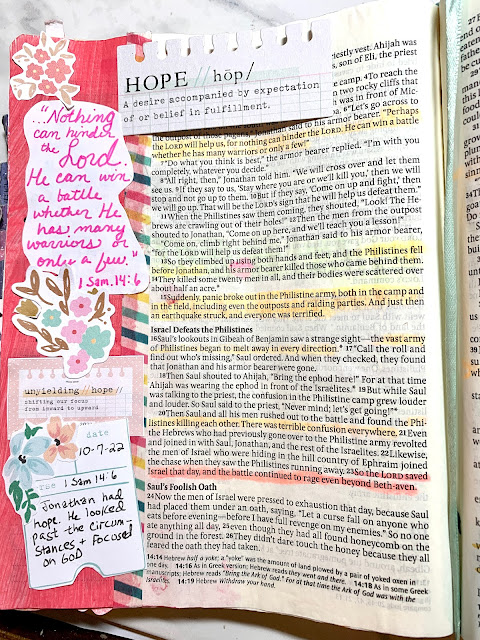 "...Nothing
can hinder
the Lord.
He can win
a battle
whether He
has many
warriors or
only a few."
1 Sam. 14:6
unyielding //hope//
shifting our focus
from inward to upward
date
10-7-22
1 Sam 14:6
Jonathan had
hope. He looked
past the circum-
stances + focused
on GOD
HOPE //hōp/
A desire accompanied by expectation
of or belief in fulfillment.
riestly vest. Ahijah was
, son of Eli, the priest
e camp. 4To reach the
n two rocky cliffs that
h was in front of Mic-
a. 6"Let's go across to
the outpost of those pagans," Jonathan said to his armor bearer. "Perhaps
the LORD will help us, for nothing can hinder the LORD. He can win a battle
whether he has many warriors or only a few!"
7"Do what you think is best," the armor bearer replied. "I'm with you
completely, whatever you decide."
8"All right, then," Jonathan told him. "We will cross over and let them
see us. 9If they say to us, 'Stay where you are or we'll kill you,' then we will
stop and not go up to them. 10But if they say, 'Come on up and fight,' then
we will go up. That will be the LORD's sign that he will help us defeat them."
11When the Philistines saw them coming, they shouted, "Look! The He-
brews are crawling out of their holes!" 12Then the men from the outpost
shouted to Jonathan, "Come on up here, and we'll teach you a lesson!"
"Come on, climb right behind me," Jonathan said to his armor bearer,
"for the LORD will help us defeat them!"
13So they climbed up using both hands and feet, and the Philistines fell
before Jonathan, and his armor bearer killed those who came behind them.
14They killed some twenty men in all, and their bodies were scattered over
about half an acre.*
15Suddenly, panic broke out in the Philistine army, both in the camp and
in the field, including even the outposts and raiding parties. And just then
an earthquake struck, and everyone was terrified.
Israel Defeats the Philistines
16Saul's lookouts in Gibeah of Benjamin saw a strange sight—the vast army
of Philistines began to melt away in every direction.* 17"Call the roll and
find out who's missing," Saul ordered. And when they checked, they found
that Jonathan and his armor bearer were gone.
18Then Saul shouted to Ahijah, "Bring the ephod here!" For at that time
Ahijah was wearing the ephod in front of the Israelites.* 19But while Saul
was talking to the priest, the confusion in the Philistine camp grew louder
and louder. So Saul said to the priest, "Never mind; let's get going!"*
20Then Saul and all his men rushed out to the battle and found the Phi-
listines killing each other. There was terrible confusion everywhere. 21Even
the Hebrews who had previously gone over to the Philistine army revolted
and joined in with Saul, Jonathan, and the rest of the Israelites. 22Likewise,
the men of Israel who were hiding in the hill country of Ephraim joined
the chase when they saw the Philistines running away. 23So the LORD saved
Israel that day, and the battle continued to rage even beyond Beth-aven.
Saul's Foolish Oath
24Now the men of Israel were pressed to exhaustion that day, because Saul
had placed them under an oath, saying, "Let a curse fall on anyone who
eats before evening—before I have full revenge on my enemies." So no one
ate anything all day, 25even though they had all found honeycomb on the
ground in the forest. 26They didn't dare touch the honey because they all
feared the oath they had taken.
14:14 Hebrew half a yoke; a "yoke" was the amount of land plowed by a pair of yoked oxen in
one day. 14:16 As in Greek version; Hebrew reads they went and there. 14:18 As in some Greek
manuscripts; Hebrew reads "Bring the Ark of God." For at that time the Ark of God was with the
Israelites. 14:19 Hebrew Withdraw your hand.